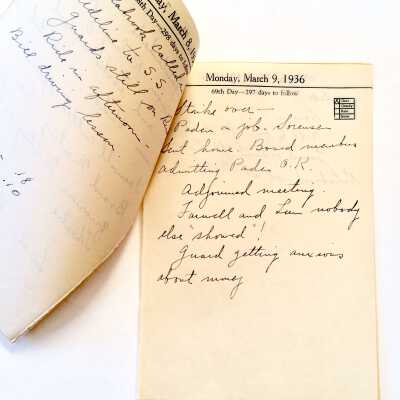 day, March 8, 
68th Day—298 days to
called
to S.S.
guards still on
Ride in afternoon—
Bill driving lesson.
.18
.10
Monday, March 9, 1936
69th Day—297 days to follow
Clear
Cloudy
Rain
Snow
Strike over—
Paden on job. Sorensen
sent home. Board members
admitting Paden O.K.
Adjourned meeting.
Farwell and nobody
else "showed"!
Guard getting anxious
about money